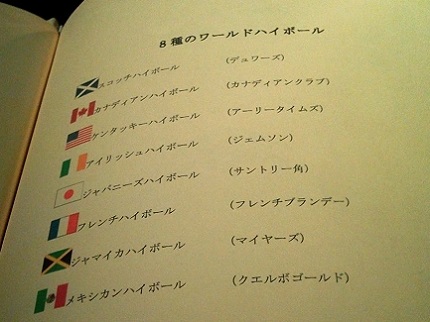 8種のワールドハイボール
スコッチハイボール (デュワーズ)
カナディアンハイボール (カナディアンクラブ)
ケンタッキーハイボール (アーリータイムズ)
アイリッシュハイボール (ジェムソン)
ジャパニーズハイボール (サントリー角)
フレンチハイボール (フレンチブランデー)
ジャマイカハイボール (マイヤーズ)
メキシカンハイボール (クエルボゴールド)